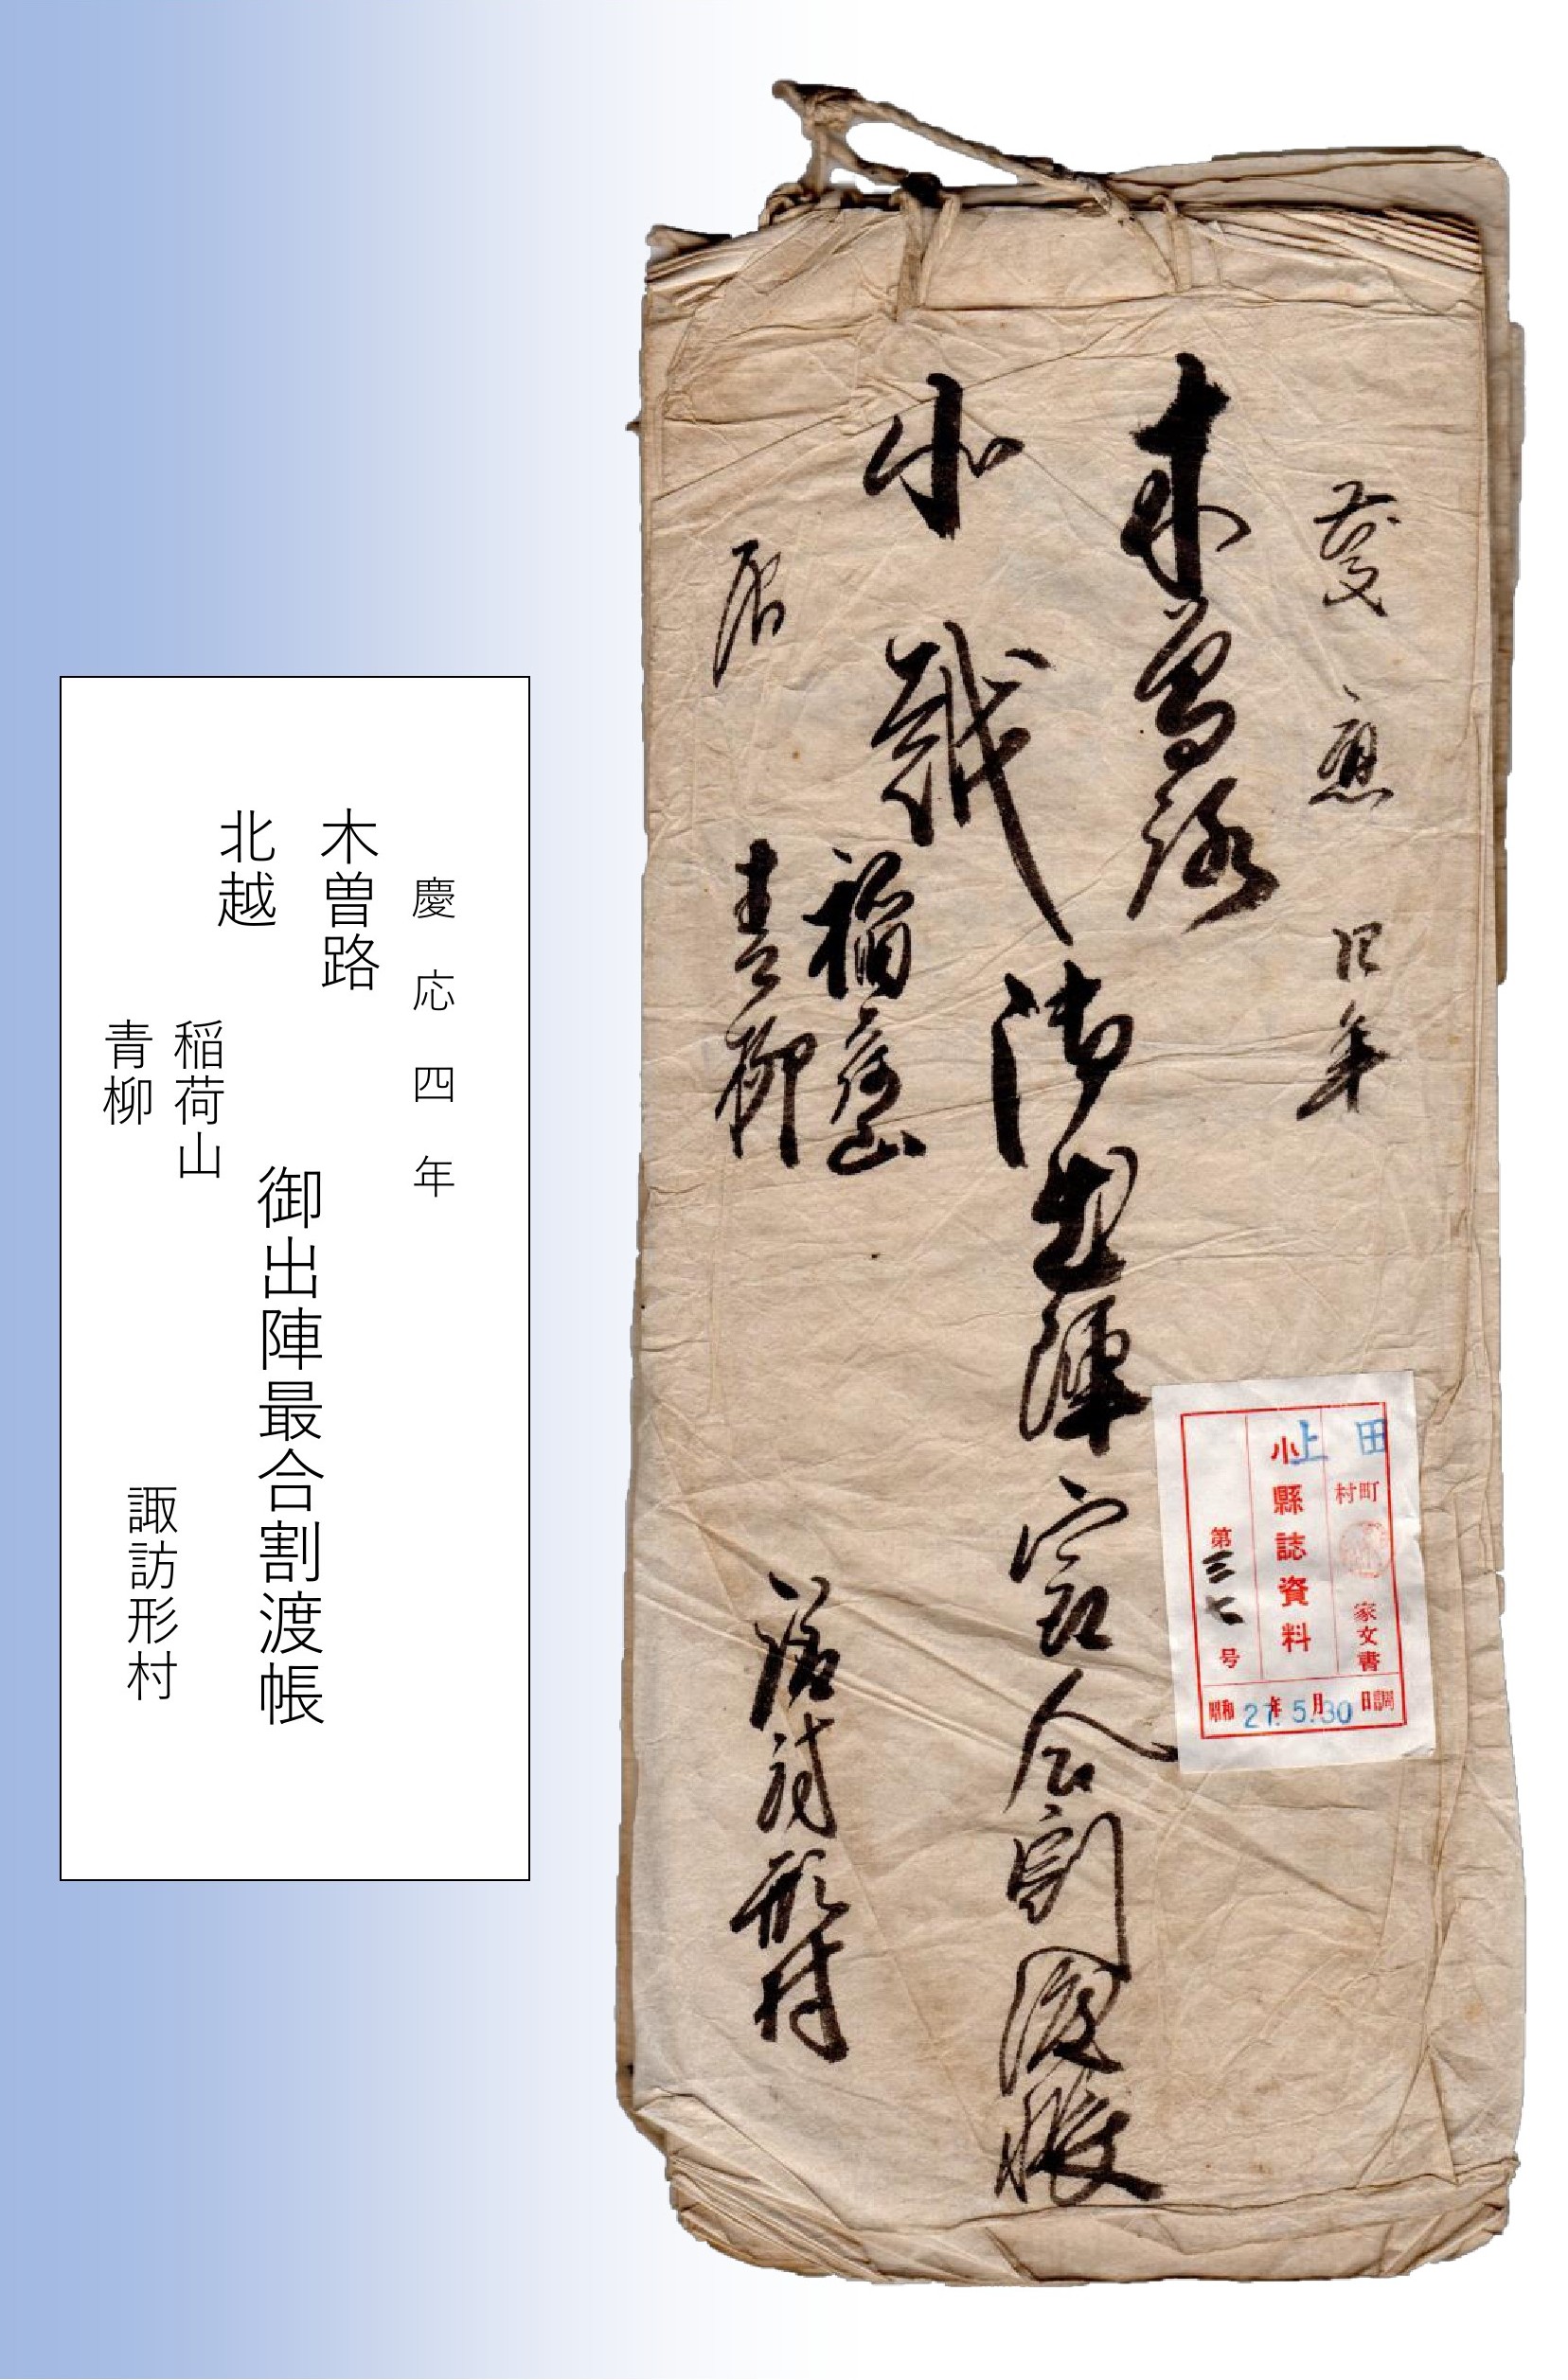 慶應四年
木曽路
北越
御出陣最合割渡帳
稲荷山
青柳
諏訪形村
田
町村
家文書
上
小縣誌資料
第三七号
昭和27年5月30日調
慶応四年
木曽路
北越
御出陣最合割渡帳
稲荷山
青柳
諏訪形村